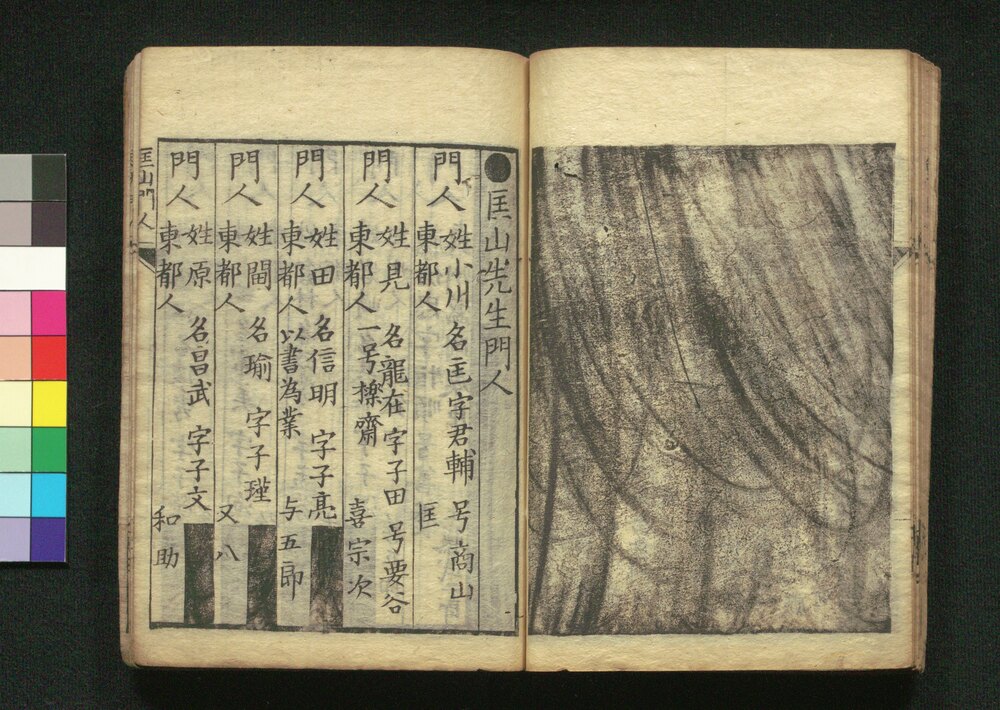 匡山先生門人
門人 姓小川 名匡 字君輔 号商山
東都人 匡
門人 姓見 名龍在 字子田 号要谷
東都人 一号檪齋 喜宗次
門人 姓田 名信明 字子亮
東都人 以書為業 与五郎
門人 姓閻 名瑜 字子瑾
東都人 又八
門人 姓原 名昌武 字子文
東都人 和助
匡山門人